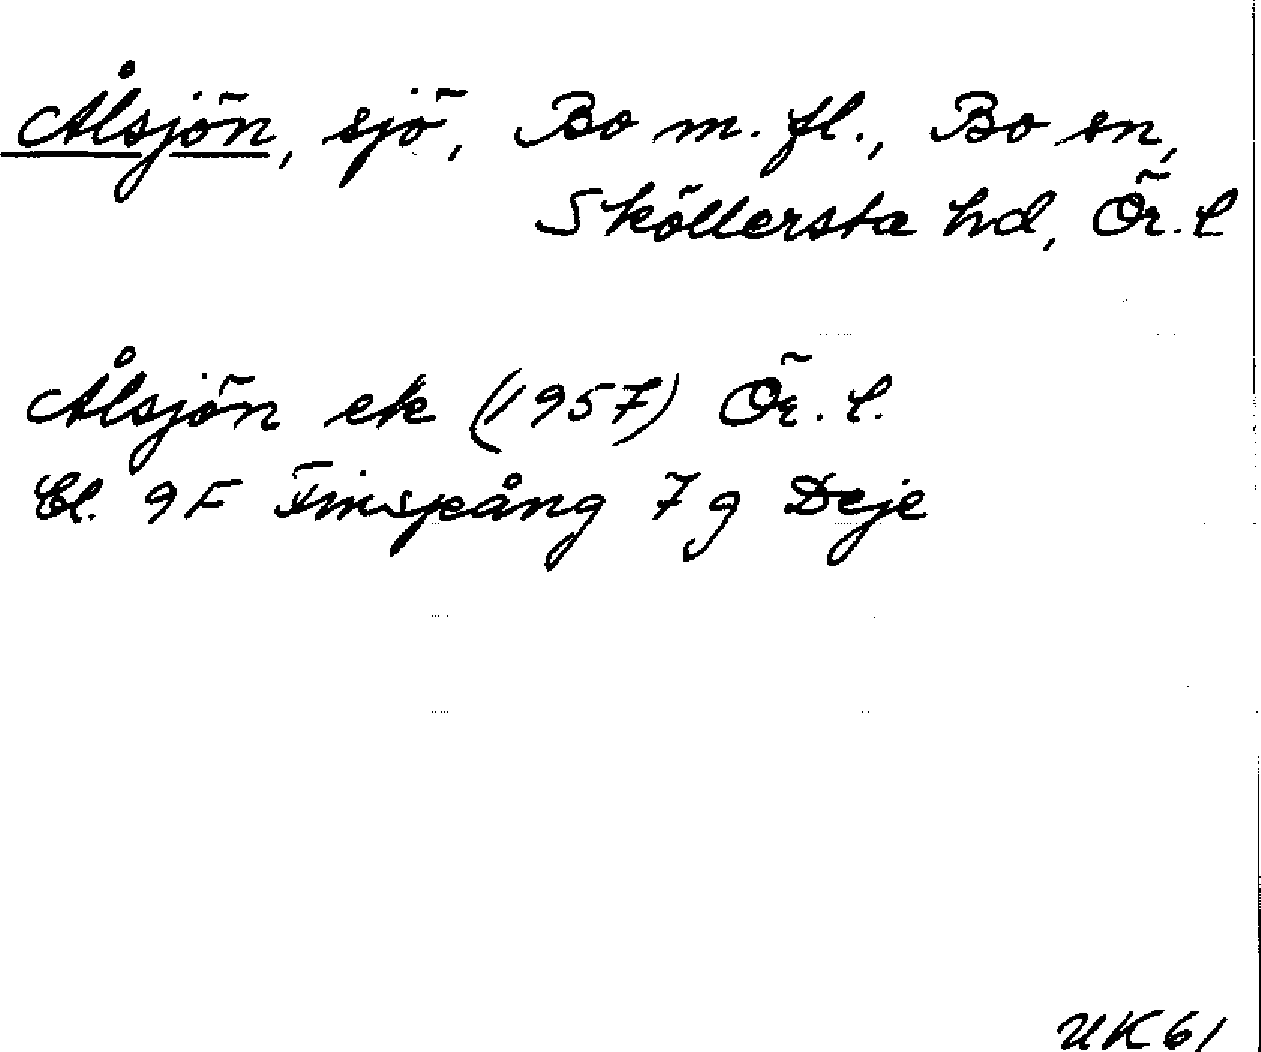 Ålsjön, sjö, Bo m. fl., Bo sn,
Sköllersta hd, Ör. l
Ålsjön ek (1957) Ör. l.
Bl. 9F Finspång 7g Deje
UK61